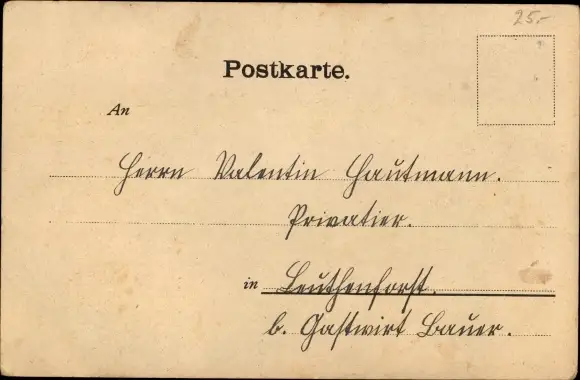 25.-
Postkarte.
An
Herrn Valentin Hautmann.
Privatier.
in Leuthenforst.
b. Gastwirt Bauer.